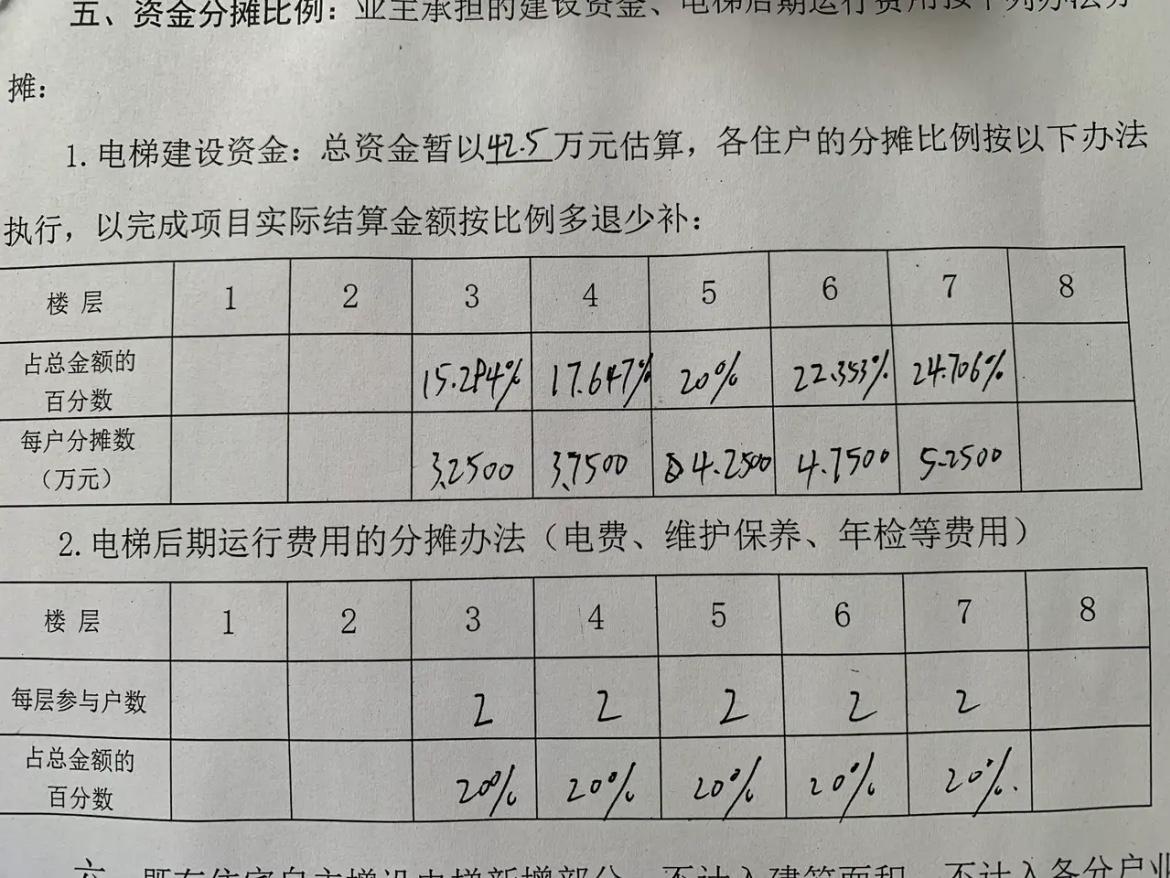 五、资金分摊比例：业主承担的建设资金、电梯后期运行费用按下列办法分
摊：
1.电梯建设资金：总资金暂以42.5万元估算，各住户的分摊比例按以下办法
执行，以完成项目实际结算金额按比例多退少补：
楼层 1 2 3 4 5 6 7 8
占总金额的
百分数 15.294% 17.647% 20% 22.353% 24.706%
每户分摊数
（万元） 3.2500 3.7500 4.2500 4.7500 5.2500
2.电梯后期运行费用的分摊办法（电费、维护保养、年检等费用）
楼层 1 2 3 4 5 6 7 8
每层参与户数 2 2 2 2 2
占总金额的
百分数 20% 20% 20% 20% 20%.
六、既有住宅自主增设电梯新增部分，不计入建筑面积，不计入各分户业